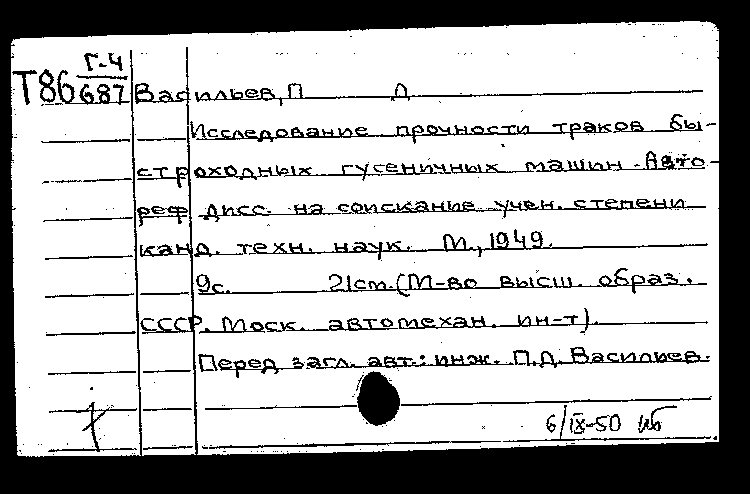 Г-4
Т86 687 Васильев, П Д
Исследование прочности траков бы-
строходных гусеничных машин. Авто-
реф дисс. на соискание учен. степени
канд. техн. наук. М., 1949.
9с. 21cm. (М-во высш. образ.
СССР. Моск. автомехан. ин-т).
Перед загл. авт.: инж. П.Д. Васильев.
6/IX-50